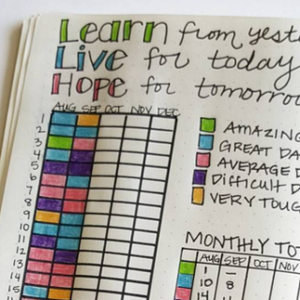 Learn from yest
Live for today
Hope for tomorro
AUG SEP OCT NOV DEC
1
2
3
4
5
6
7
8
9
10
11
12
13
14
15
AMAZING
GREAT DA
AVERAGE D
DIFFICULT D
VERY TOUG
MONTHLY TO
AUG SEP OCT NOV
1 –
10 8
14